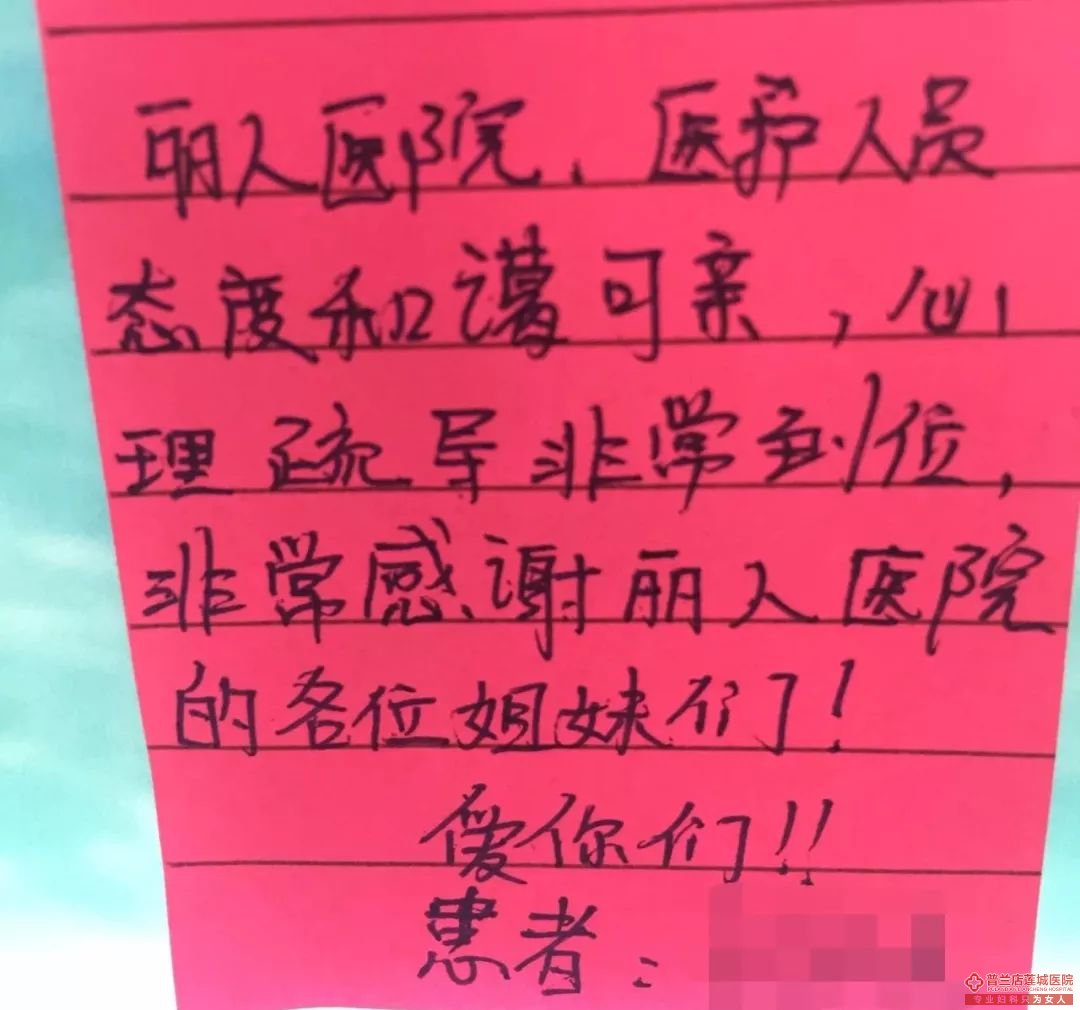 丽人医院、医护人员
态度和谒可亲，心
理疏导非常到位，
非常感谢丽人医院
的各位姐妹们！
爱你们!!
患者：
普兰店莲城医院
PULANDIAN LIANCHENG HOSPITAL
专业妇科只为女人